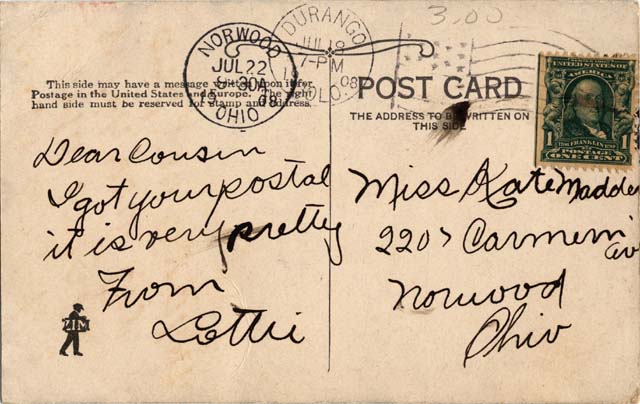 3.00
NORWOOD
JUL 22
5-30A
08
OHIO
DURANGO
JUL 18
7-PM
08
COLO.
This side may have a message written upon it for
Postage in the United States and Europe. The right
hand side must be reserved for stamp and address.
POST CARD
THE ADDRESS TO BE WRITTEN ON
THIS SIDE
UNITED STATES OF
AMERICA
FRANKLIN
1 POSTAGE 1
ONE CENT
Dear Cousin
I got your postal
it is very pretty
From
Lottie
ZIM
Miss Kate Madde
2207 Carmern
av
Norwood
Ohio